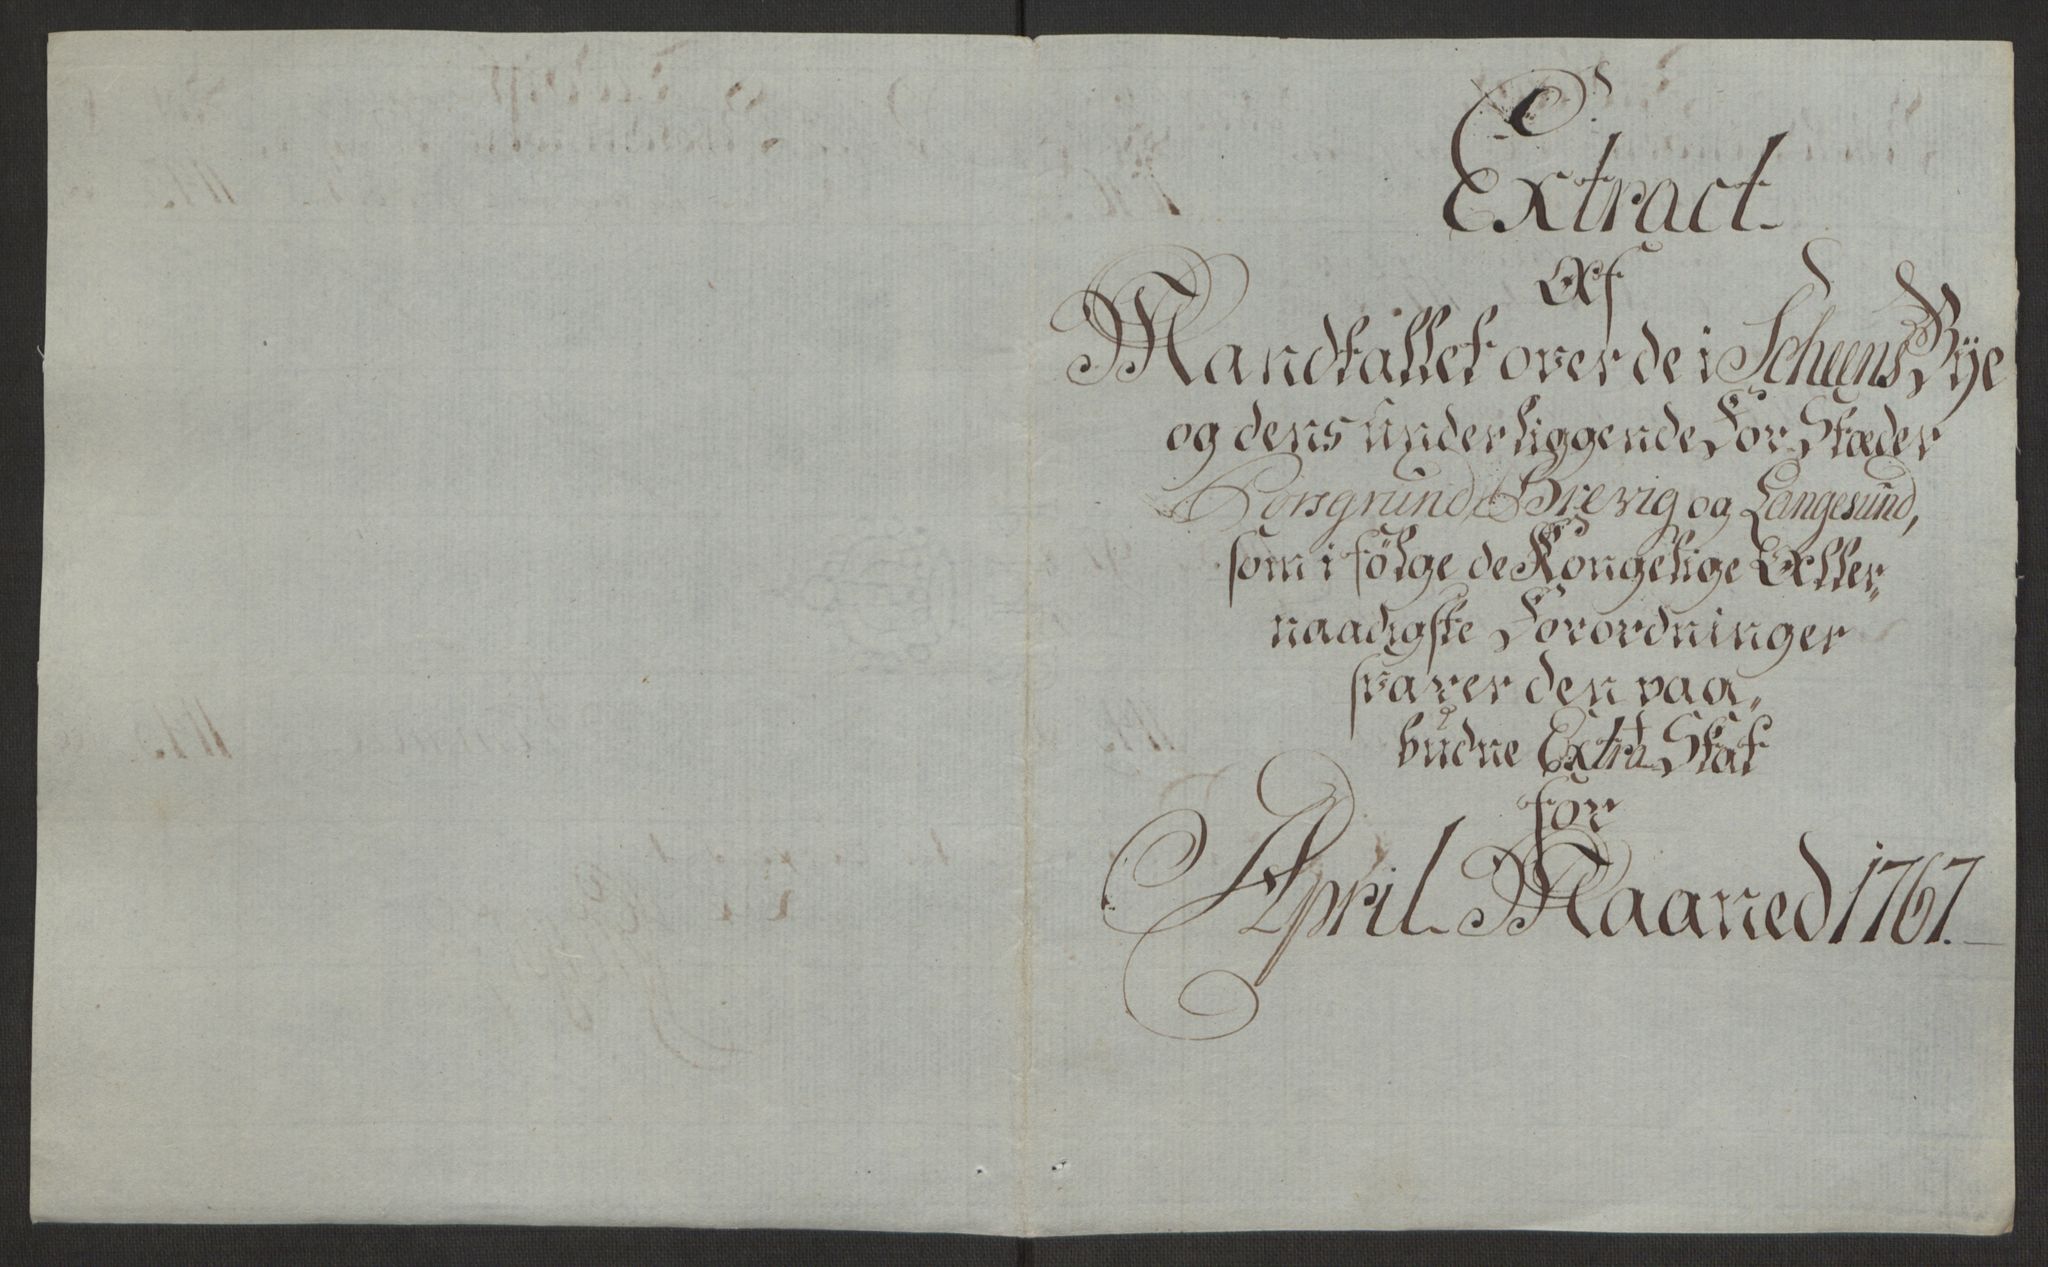 Extract
Af
Mandtallet over de i Scheens Bye
og dens underliggende For Stæder
Porsgrund, Brevig og Langesund,
som i følge de Kongelige Aller,,
naadigste Forordninger
svarer den paa,,
budne Extra Skat
for
April Maaned 1767.